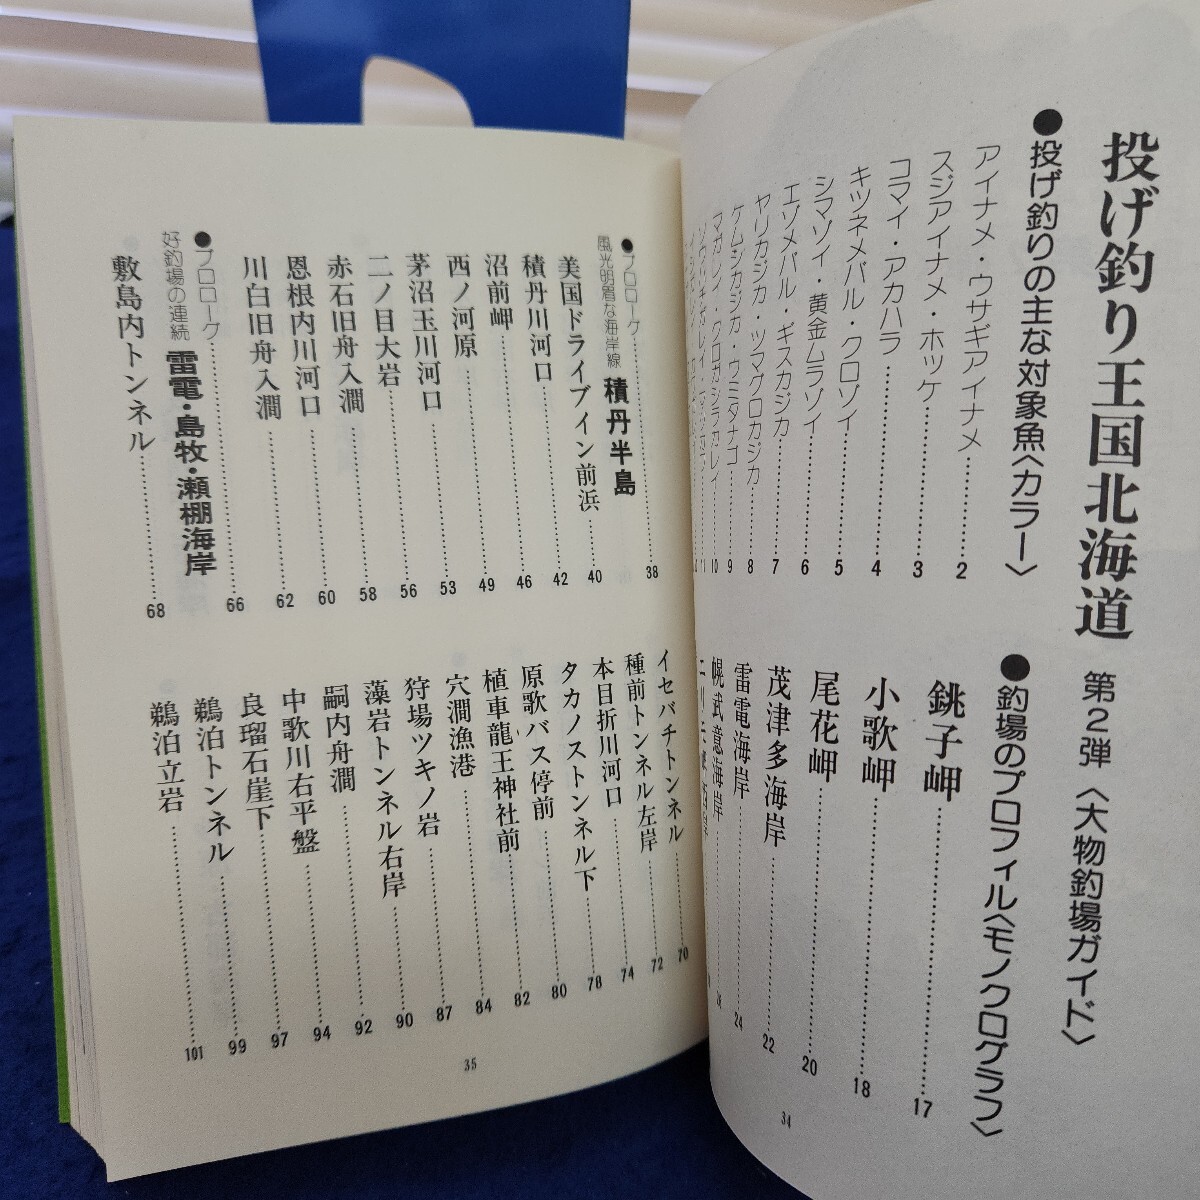 投げ釣り王国北海道 第2弾〈大物釣場ガイド〉
●投げ釣りの主な対象魚〈カラー〉
アイナメ・ウサギアイナメ…………2
スジアイナメ・ホッケ…………3
コマイ・アカハラ…………4
キツネメバル・クロゾイ…………5
シマゾイ・黄金ムラゾイ…………6
エゾメバル・ギスカジカ…………7
ヤリカジカ・ツマグロカジカ…………8
ケムシカジカ・ウミタナゴ…………9
マガレイ・クロガシラガレイ…………10
●釣場のプロフィル〈モノクログラフ〉
銚子岬…………17
小歌岬…………18
尾花岬…………20
茂津多海岸…………22
雷電海岸…………24
幌武意海岸…………
34
●プロローグ…………38
風光明眉な海岸線 積丹半島
美国ドライブイン前浜…………40
積丹川河口…………42
沼前岬…………46
西ノ河原…………49
茅沼玉川河口…………53
二ノ目大岩…………56
赤石旧舟入澗…………58
恩根内川河口…………60
川白旧舟入澗…………62
●プロローグ…………66
好釣場の連続 雷電・島牧・瀬棚海岸
敷島内トンネル…………68
イセバチトンネル…………70
種前トンネル左岸…………72
本目折川河口…………74
タカノストンネル下…………78
原歌バス停前…………80
植車龍王神社前…………82
穴澗漁港…………84
狩場ツキノ岩…………87
藻岩トンネル右岸…………90
嗣内舟澗…………92
中歌川右平盤…………94
良瑠石崖下…………97
鵜泊トンネル…………99
鵜泊立岩…………101
35